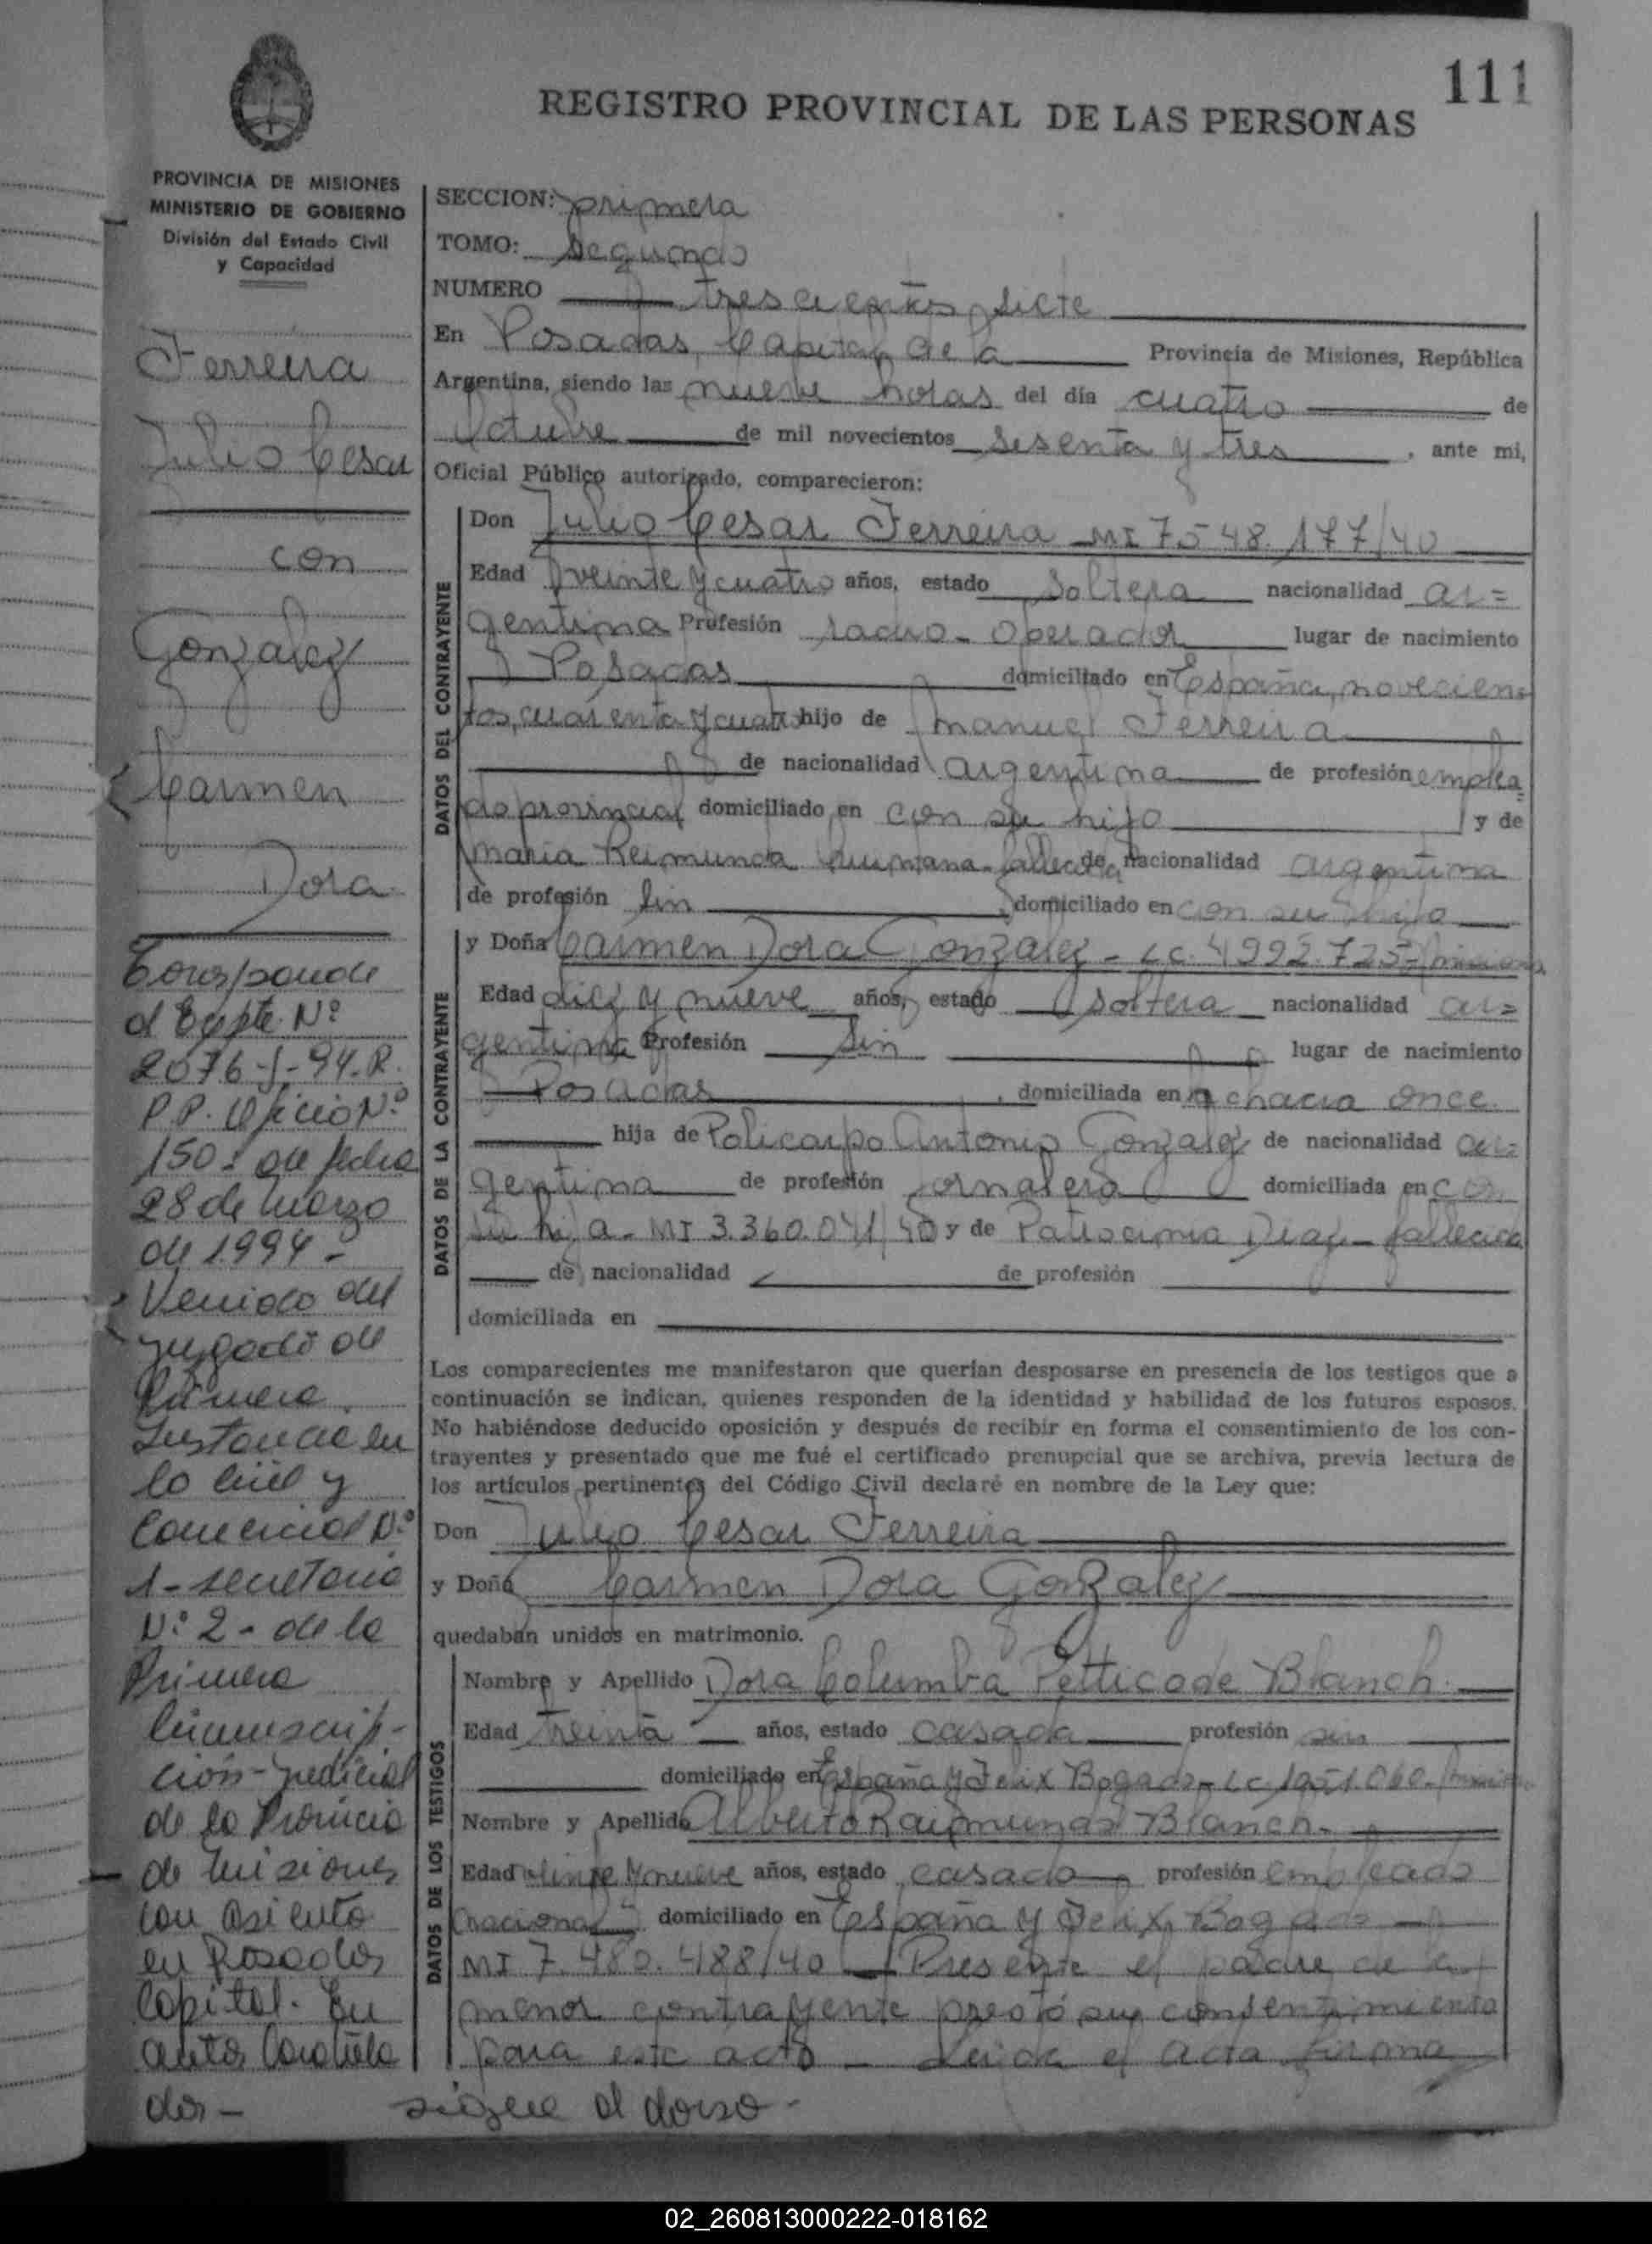 111
REGISTRO PROVINCIAL DE LAS PERSONAS
PROVINCIA DE MISIONES
MINISTERIO DE GOBIERNO
División del Estado Civil
y Capacidad
Ferreira
Julio Cesar
con
Gonzalez
Carmen
Dora
Corresponde
al Expte. Nº
2076-J-94-R.
P.P. Oficio Nº
150- de fecha
28 de marzo
de 1994-
Venido del
juzgado de
Primera
Instancia en
lo civil y
Comercial Nº
1-secretaria
Nº 2- de la
Primera
Circunscrip-
ción-judicial
de la Provincia
de Misiones
con asiento
en Posadas
Capital. En
autos Caratula
dos-
sigue al dorso-
SECCION: primera
TOMO: Segundo
NUMERO trescientos siete
En Posadas, Capital de la Provincia de Misiones, República
Argentina, siendo las nueve horas del día cuatro de
Octubre de mil novecientos sesenta y tres, ante mi,
Oficial Público autorizado, comparecieron:
DATOS DEL CONTRAYENTE
Don Julio Cesar Ferreira MI 7548.177/40
Edad veinte y cuatro años, estado Soltera nacionalidad ar=
gentina Profesión radio-operador lugar de nacimiento
Posadas domiciliado en España, novecien=
tos, cuarenta y cuatro hijo de Manuel Ferreira
de nacionalidad argentina de profesión emplea=
do provincial domiciliado en con su hijo y de
Maria Reimunda Quintana-fallecida de nacionalidad argentina
de profesión sin domiciliado en con su hijo
DATOS DE LA CONTRAYENTE
y Doña Carmen Dora Gonzalez - LC. 4992.725-Misiones
Edad diez y nueve años, estado soltera nacionalidad ar=
gentina Profesión sin lugar de nacimiento
Posadas, domiciliada en Chacra once
hija de Policarpo Antonio Gonzalez de nacionalidad ar=
gentina de profesión jornalero domiciliada en con
su hija- MI 3.360.041/40 y de Patrocinia Diaz-fallecida
de nacionalidad de profesión
domiciliada en
Los comparecientes me manifestaron que querían desposarse en presencia de los testigos que a
continuación se indican, quienes responden de la identidad y habilidad de los futuros esposos.
No habiéndose deducido oposición y después de recibir en forma el consentimiento de los con-
trayentes y presentado que me fué el certificado prenupcial que se archiva, previa lectura de
los artículos pertinentes del Código Civil declaré en nombre de la Ley que:
Don Julio Cesar Ferreira
y Doña Carmen Dora Gonzalez
quedaban unidos en matrimonio.
DATOS DE LOS TESTIGOS
Nombre y Apellido Dora Columba de Blanch
Edad treinta años, estado casada profesión sin
domiciliado en España y Felix Bogado- LC 1951.060-Misiones
Nombre y Apellido Alberto Raymundo Blanch-
Edad veinte y nueve años, estado casado profesión empleado
nacional domiciliado en España y Felix Bogado
MI 7.480.488/40 Presente el padre de la
menor contrayente prestó su consentimiento
para este acto - Leida el acta firma
02_260813000222-018162